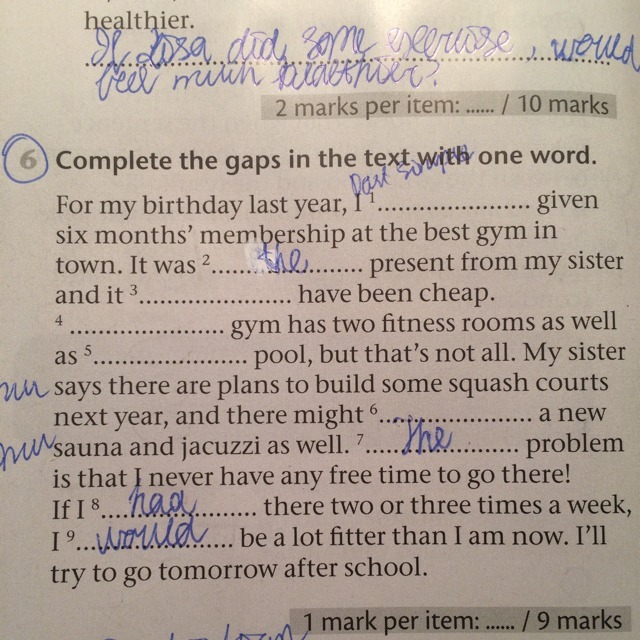 healthier.
If Lisa did some exercise, would
feel much healthier?
2 marks per item: ...... / 10 marks
6 Complete the gaps in the text with one word.
Past simple
For my birthday last year, I 1........................ given
six months' membership at the best gym in
town. It was 2........the......... present from my sister
and it 3........................ have been cheap.
4 ........................ gym has two fitness rooms as well
as 5........................ pool, but that's not all. My sister
says there are plans to build some squash courts
next year, and there might 6........................ a new
sauna and jacuzzi as well. 7......the.......... problem
is that I never have any free time to go there!
If I 8....had.......... there two or three times a week,
I 9...would.... be a lot fitter than I am now. I'll
try to go tomorrow after school.
1 mark per item: ...... / 9 marks